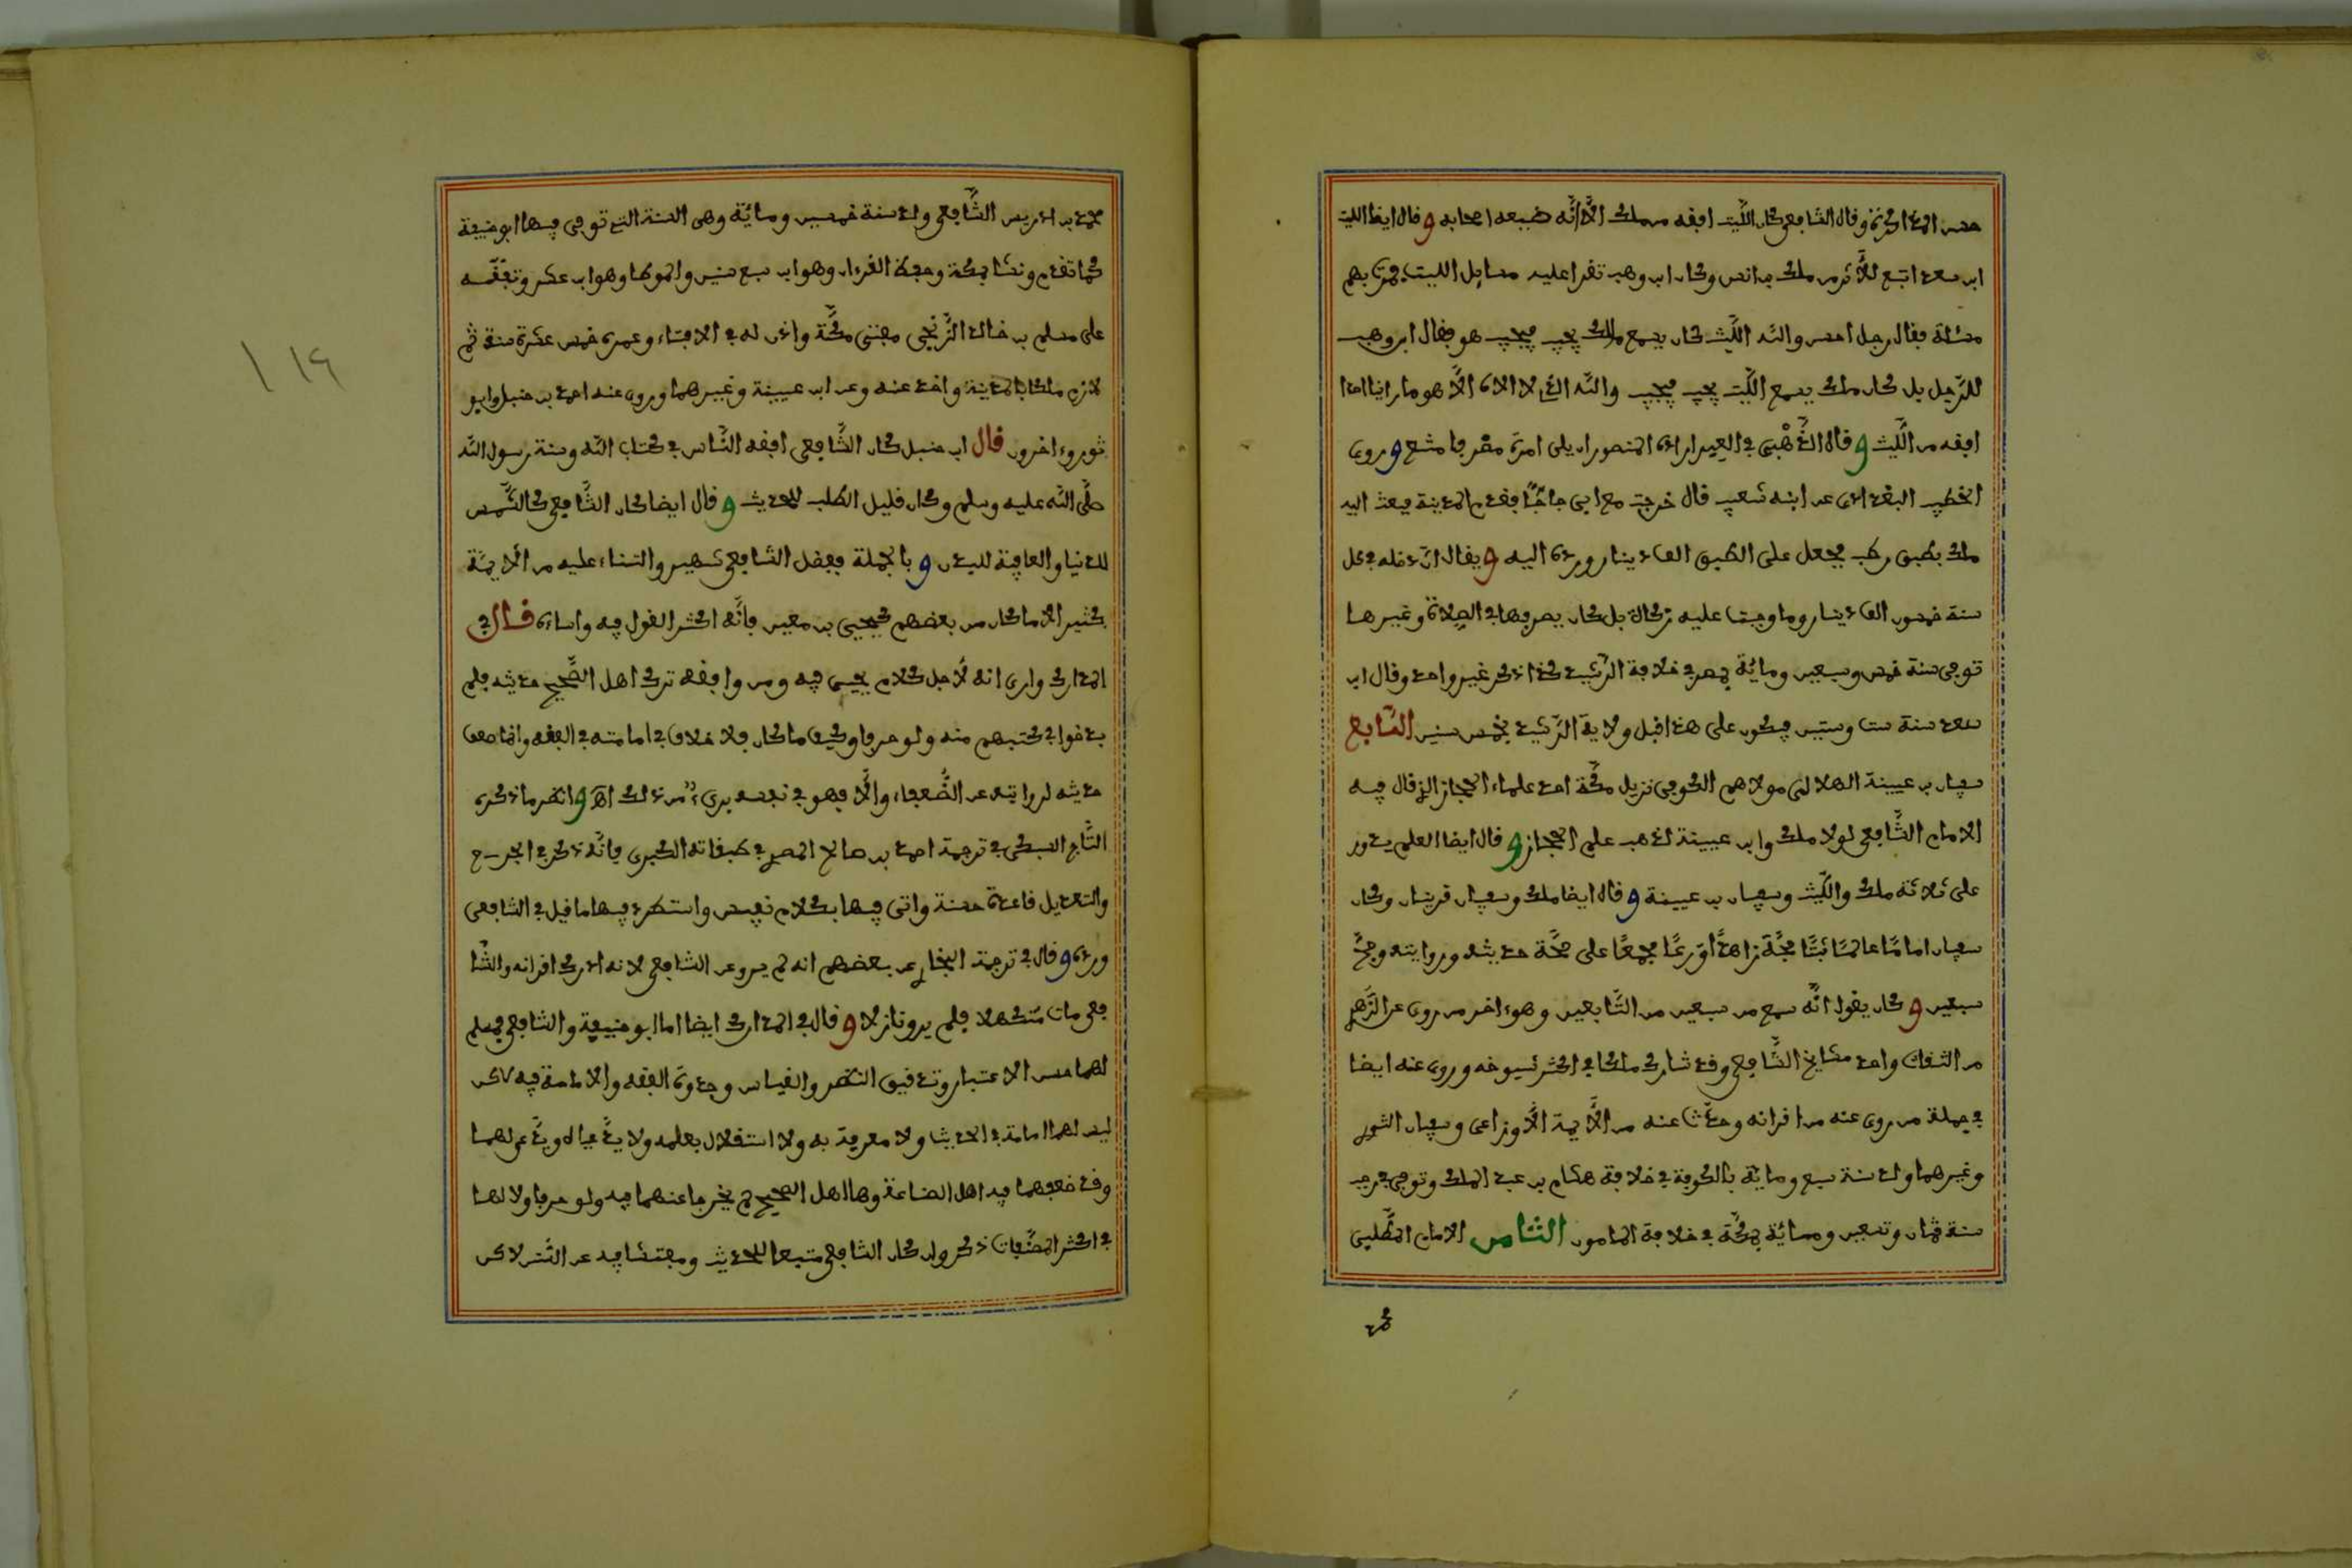 حسن المذاكرة وقال الشافعي كان الليث افقه من ملك الا انه ضيعه اصحابه وقال ايضا الليث
ابن سعد اتبع للأثر من ملك بن انس وكان ابن وهب تقرا عليه مسايل الليث فمرت بهم
مسئلة فقال رجل احسن والله الليث كان يسمع ملك يجيب فيجيب هو فقال ابن وهب
للرجل بل كان ملك يسمع الليث يجيب فيجيب والله الذي لا الاه الا هو ما راينا احدا
افقه من الليث وقال الذهبي في العبر اراد المنصور ان يلي امرة مصر فامتنع وروى
الخطيب البغدادي عن ابنه شعيب قال خرجت مع ابي حاجا فقدم المدينة فبعث اليه
ملك بطبق رطب فجعل على الطبق الف دينار ورده اليه ويقال ان دخله في كل
سنة خمسون الف دينار وما وجبت عليه زكاة بل كان يصرفها في الصلاة وغيرها
توفي سنة خمس وسبعين ومائة بمصر في خلافة الرشيد كذا ذكر غير واحد وقال ابن
سعد سنة ست وستين فيكون على هذا قبل ولاية الرشيد بخمس سنين السابع
سفيان بن عيينة الهلالي مولاهم الكوفي نزيل مكة احد علماء الحجاز الذي قال فيه
الامام الشافعي لولا ملك وابن عيينة لذهب علم الحجاز وقال ايضا العلم يدور
على ثلاثة ملك والليث وسفيان بن عيينة وقال ايضا ملك وسفيان قرينان وكان
سفيان اماما عالما ثبتا حجة زاهدا ورعا مجمعا على صحة حديثه وروايته وحج
سبعين وكان يقول انه سمع من سبعين من التابعين وهو ءاخر من روى عن الزهري
من الثقات واحد مشايخ الشافعي وقد شارك ملكا في اكثر شيوخه وروى عنه ايضا
في جملة من روى عنه من اقرانه وحدث عنه من الأيمة الأوزاعي وسفيان الثوري
وغيرهما ولد سنة سبع ومائة بالكوفة في خلافة هشام بن عبد الملك وتوفي في رجب
سنة ثمان وتسعين ومائة بمكة في خلافة المامون الثامن الامام المطلبي
محمد
محمد بن ادريس الشافعي ولد سنة خمسين ومائة وهي السنة التي توفي فيها ابو حنيفة
كما تقدم ونشا بمكة وحفظ القرءان وهو ابن سبع سنين والموطا وهو ابن عشر وتفقه
على مسلم بن خالد الزنجي مفتي مكة واذن له في الافتاء وعمره خمس عشرة سنة ثم
لازم ملكا بالمدينة واخذ عنه وعن ابن عيينة وغيرهما وروى عنه احمد بن حنبل وابو
ثور وءاخرون قال ابن حنبل كان الشافعي افقه الناس في كتاب الله وسنة رسول الله
صلى الله عليه وسلم وكان قليل الطلب للحديث وقال ايضا كان الشافعي كالشمس
للدنيا والعافية للبدن وبالجملة ففضل الشافعي شهير والثناء عليه من الأيمة
كثير الا ما كان من بعضهم كيحيى بن معين فانه اكثر القول فيه واساء قال في
المدارك وارى انه لأجل كلام يحيى فيه ومن وافقه ترك اهل الصحيح حديثه فلم
يدخلوا في كتبهم منه ولو حرفا وكيف ما كان فلا خلاف في امامته في الفقه وانما ضعف
حديثه لروايته عن الضعفاء والا فهو في نفسه بريء من ذلك اهـ وانظر ما ذكره
التاج السبكي في ترجمة احمد بن صالح المصري في طبقاته الكبرى فانه ذكر في الجرح
والتعديل قاعدة حسنة واتى فيها بكلام نفيس واستطرد فيها ما قيل في الشافعي
ورده وقال في ترجمة البخاري عن بعضهم انه لم يرو عن الشافعي لانه ادرك اقرانه والشا
فعي مات متكهلا فلم يروه نازلا وقال في المدارك ايضا اما ابو حنيفة والشافعي فمسلم
لهما حسن الاعتبار وتدقيق النظر والقياس وجودة الفقه والامامة فيه لاكن
ليس لهما امامة في الحديث ولا معرفة به ولا استقلال بعلمه ولا يدعيانه ولا يدعى لهما
وقد ضعفهما فيه اهل الصناعة وها اهل الصحيح لم يخرجا عنهما فيه ولو حرفا ولا لهما
في اكثر المصنفات ذكر وان كان الشافعي متبعا للحديث ومفتشا فيه عن السنن لاكن
١١٦